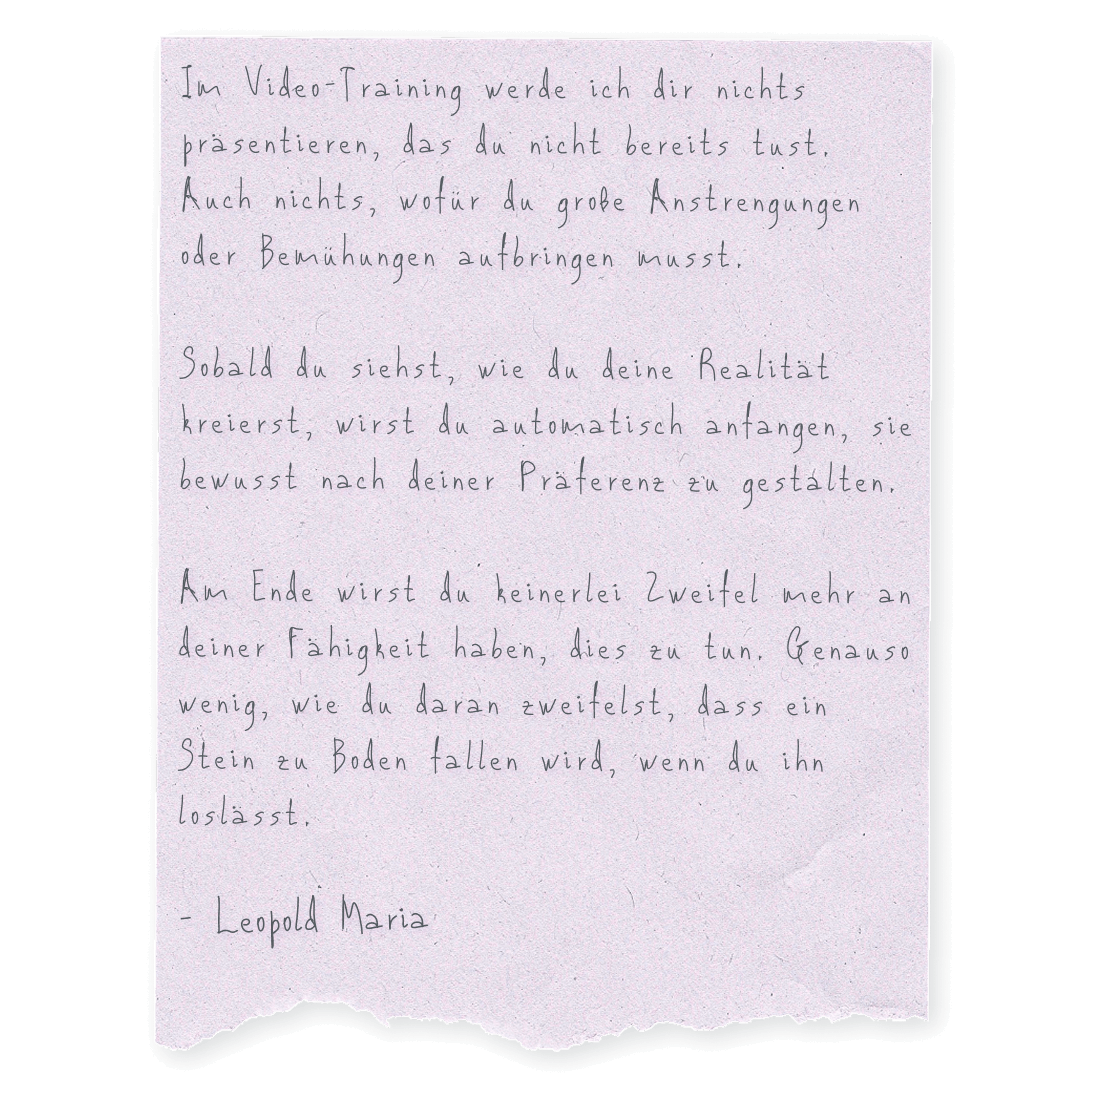 Im Video-Training werde ich dir nichts
präsentieren, das du nicht bereits tust.
Auch nichts, wofür du große Anstrengungen
oder Bemühungen aufbringen musst.
Sobald du siehst, wie du deine Realität
kreierst, wirst du automatisch anfangen, sie
bewusst nach deiner Präferenz zu gestalten.
Am Ende wirst du keinerlei Zweifel mehr an
deiner Fähigkeit haben, dies zu tun. Genauso
wenig, wie du daran zweifelst, dass ein
Stein zu Boden fallen wird, wenn du ihn
loslässt.
- Leopold Maria